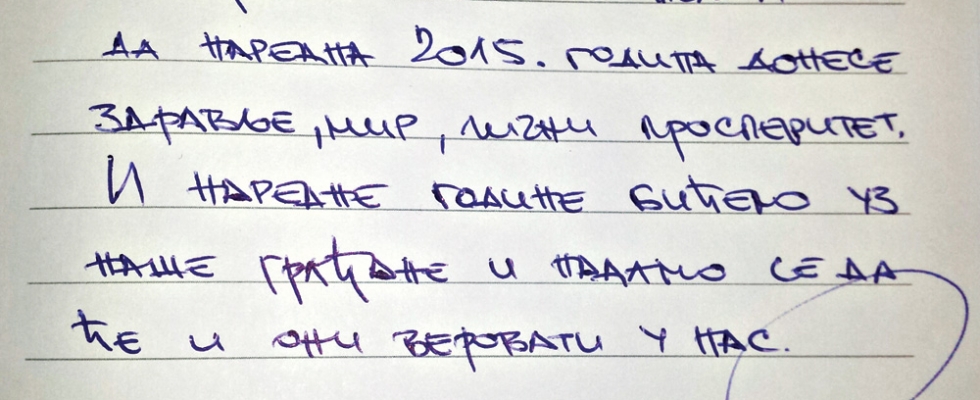 ДА НАРЕДНА 2015. ГОДИНА ДОНЕСЕ
ЗДРАВЉЕ, МИР, ЛИЧНИ ПРОСПЕРИТЕТ.
И НАРЕДНЕ ГОДИНЕ БИЋЕМО УЗ
НАШЕ ГРАЂАНЕ И НАДАМО СЕ ДА
ЋЕ И ОНИ ВЕРОВАТИ У НАС.